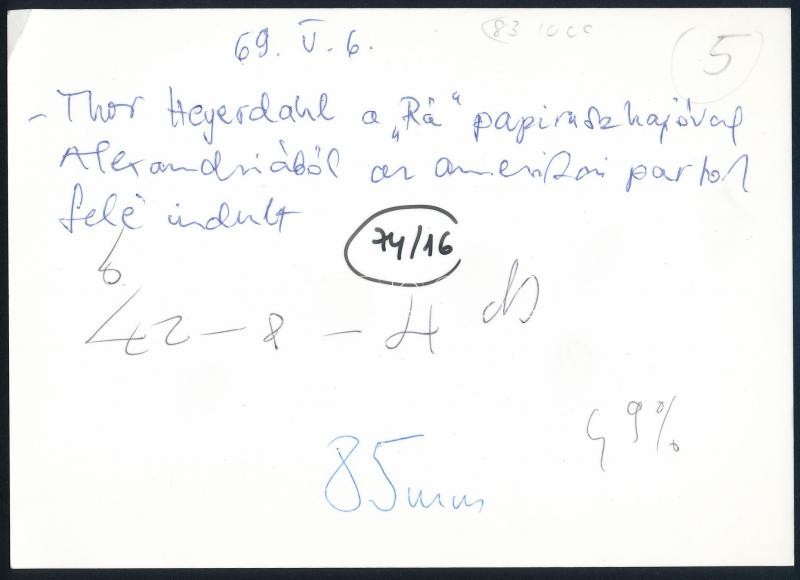 83
69. V. 6.
5
- Thor Heyerdahl a „Rá“ papiruszhajóval
Alexandriából az amerikai partok
felé indult
74/16
6
42-8-4 db
49%
85mm